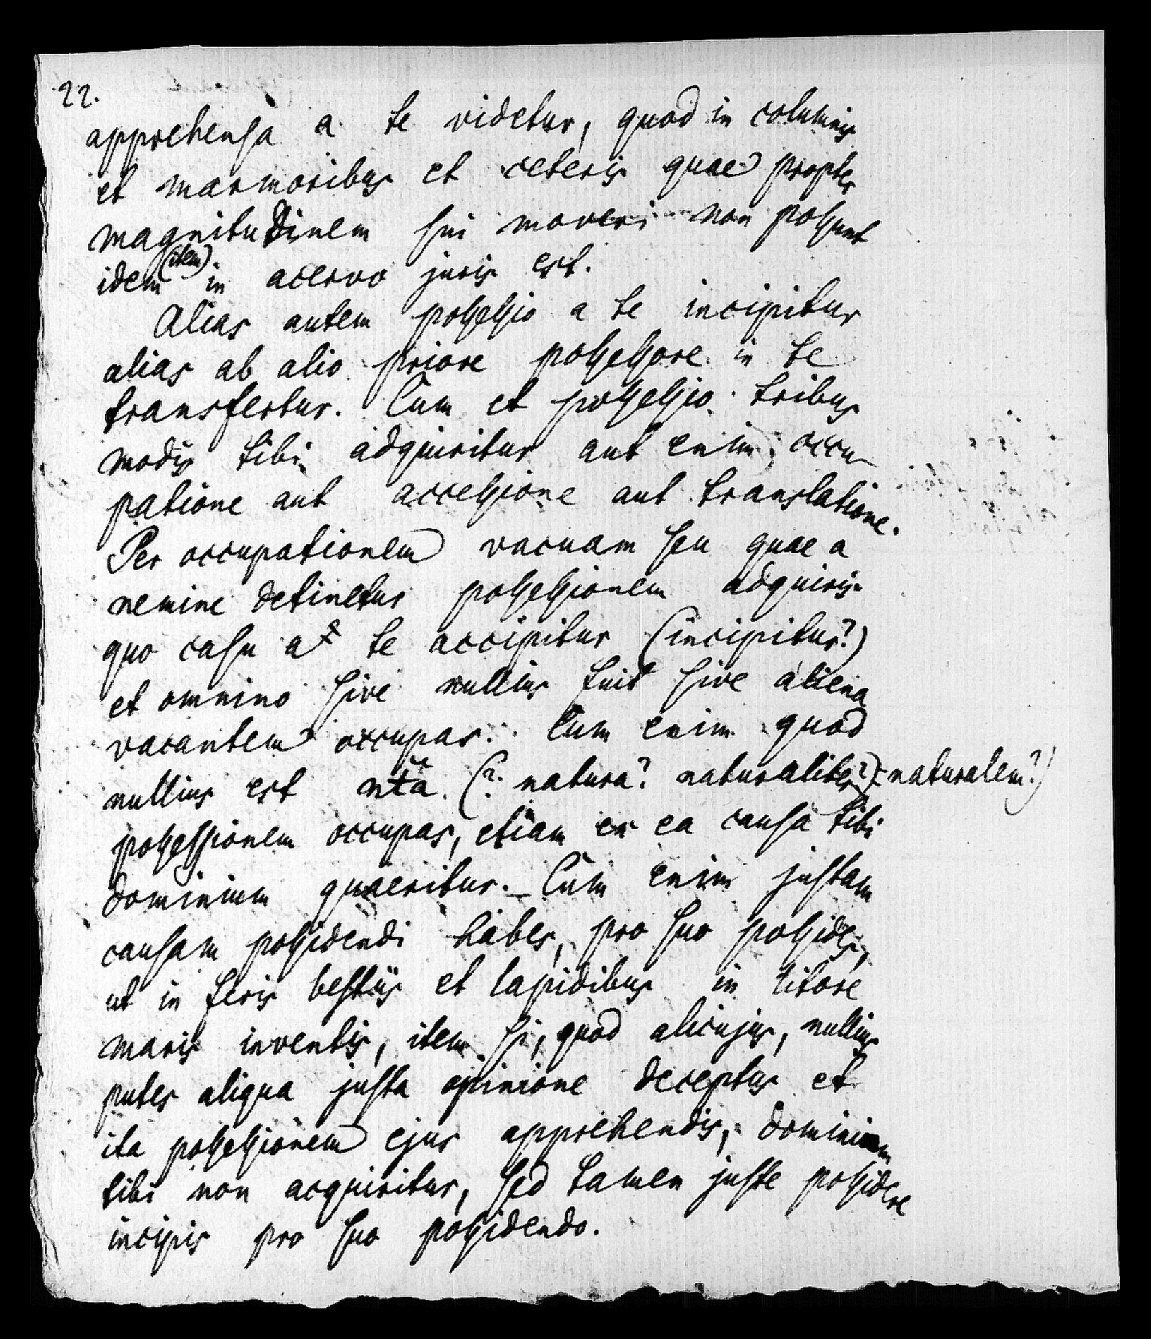 22.
apprehensa a te videtur, quod in columnis
et marmoribus et ceteris quae propter
magnitudinem sui moveri non possunt
idem (item) in acervo juris est.
Alias autem possessio a te incipitur
alias ab alio priore possessore in te
transfertur. Cum et possessio tribus
modis tibi adquiritur aut enim occu
patione aut accessione aut translatione.
Per occupationem vacuam seu quae a
nemine detinetur possessionem adquiris
quo casu a te accipitur (incipitur?)
et omnino sive nullius fuit sive aliena
vacantem occupas. Cum enim quod
nullius est nta (? natura? naturaliter? naturalem?)
possessionem occupas, etiam ex ea causa tibi
dominium quaeritur. Cum enim justam
causam possidendi habes, pro suo possides,
ut in feris bestiis et lapidibus in litore
maris inventis, item si, quod alicujus, nullius
putes aliqua justa opinione deceptus et
ita possessionem ejus apprehendis, dominium
tibi non acquiritur, sed tamen juste possidere
incipis pro suo possidendo.